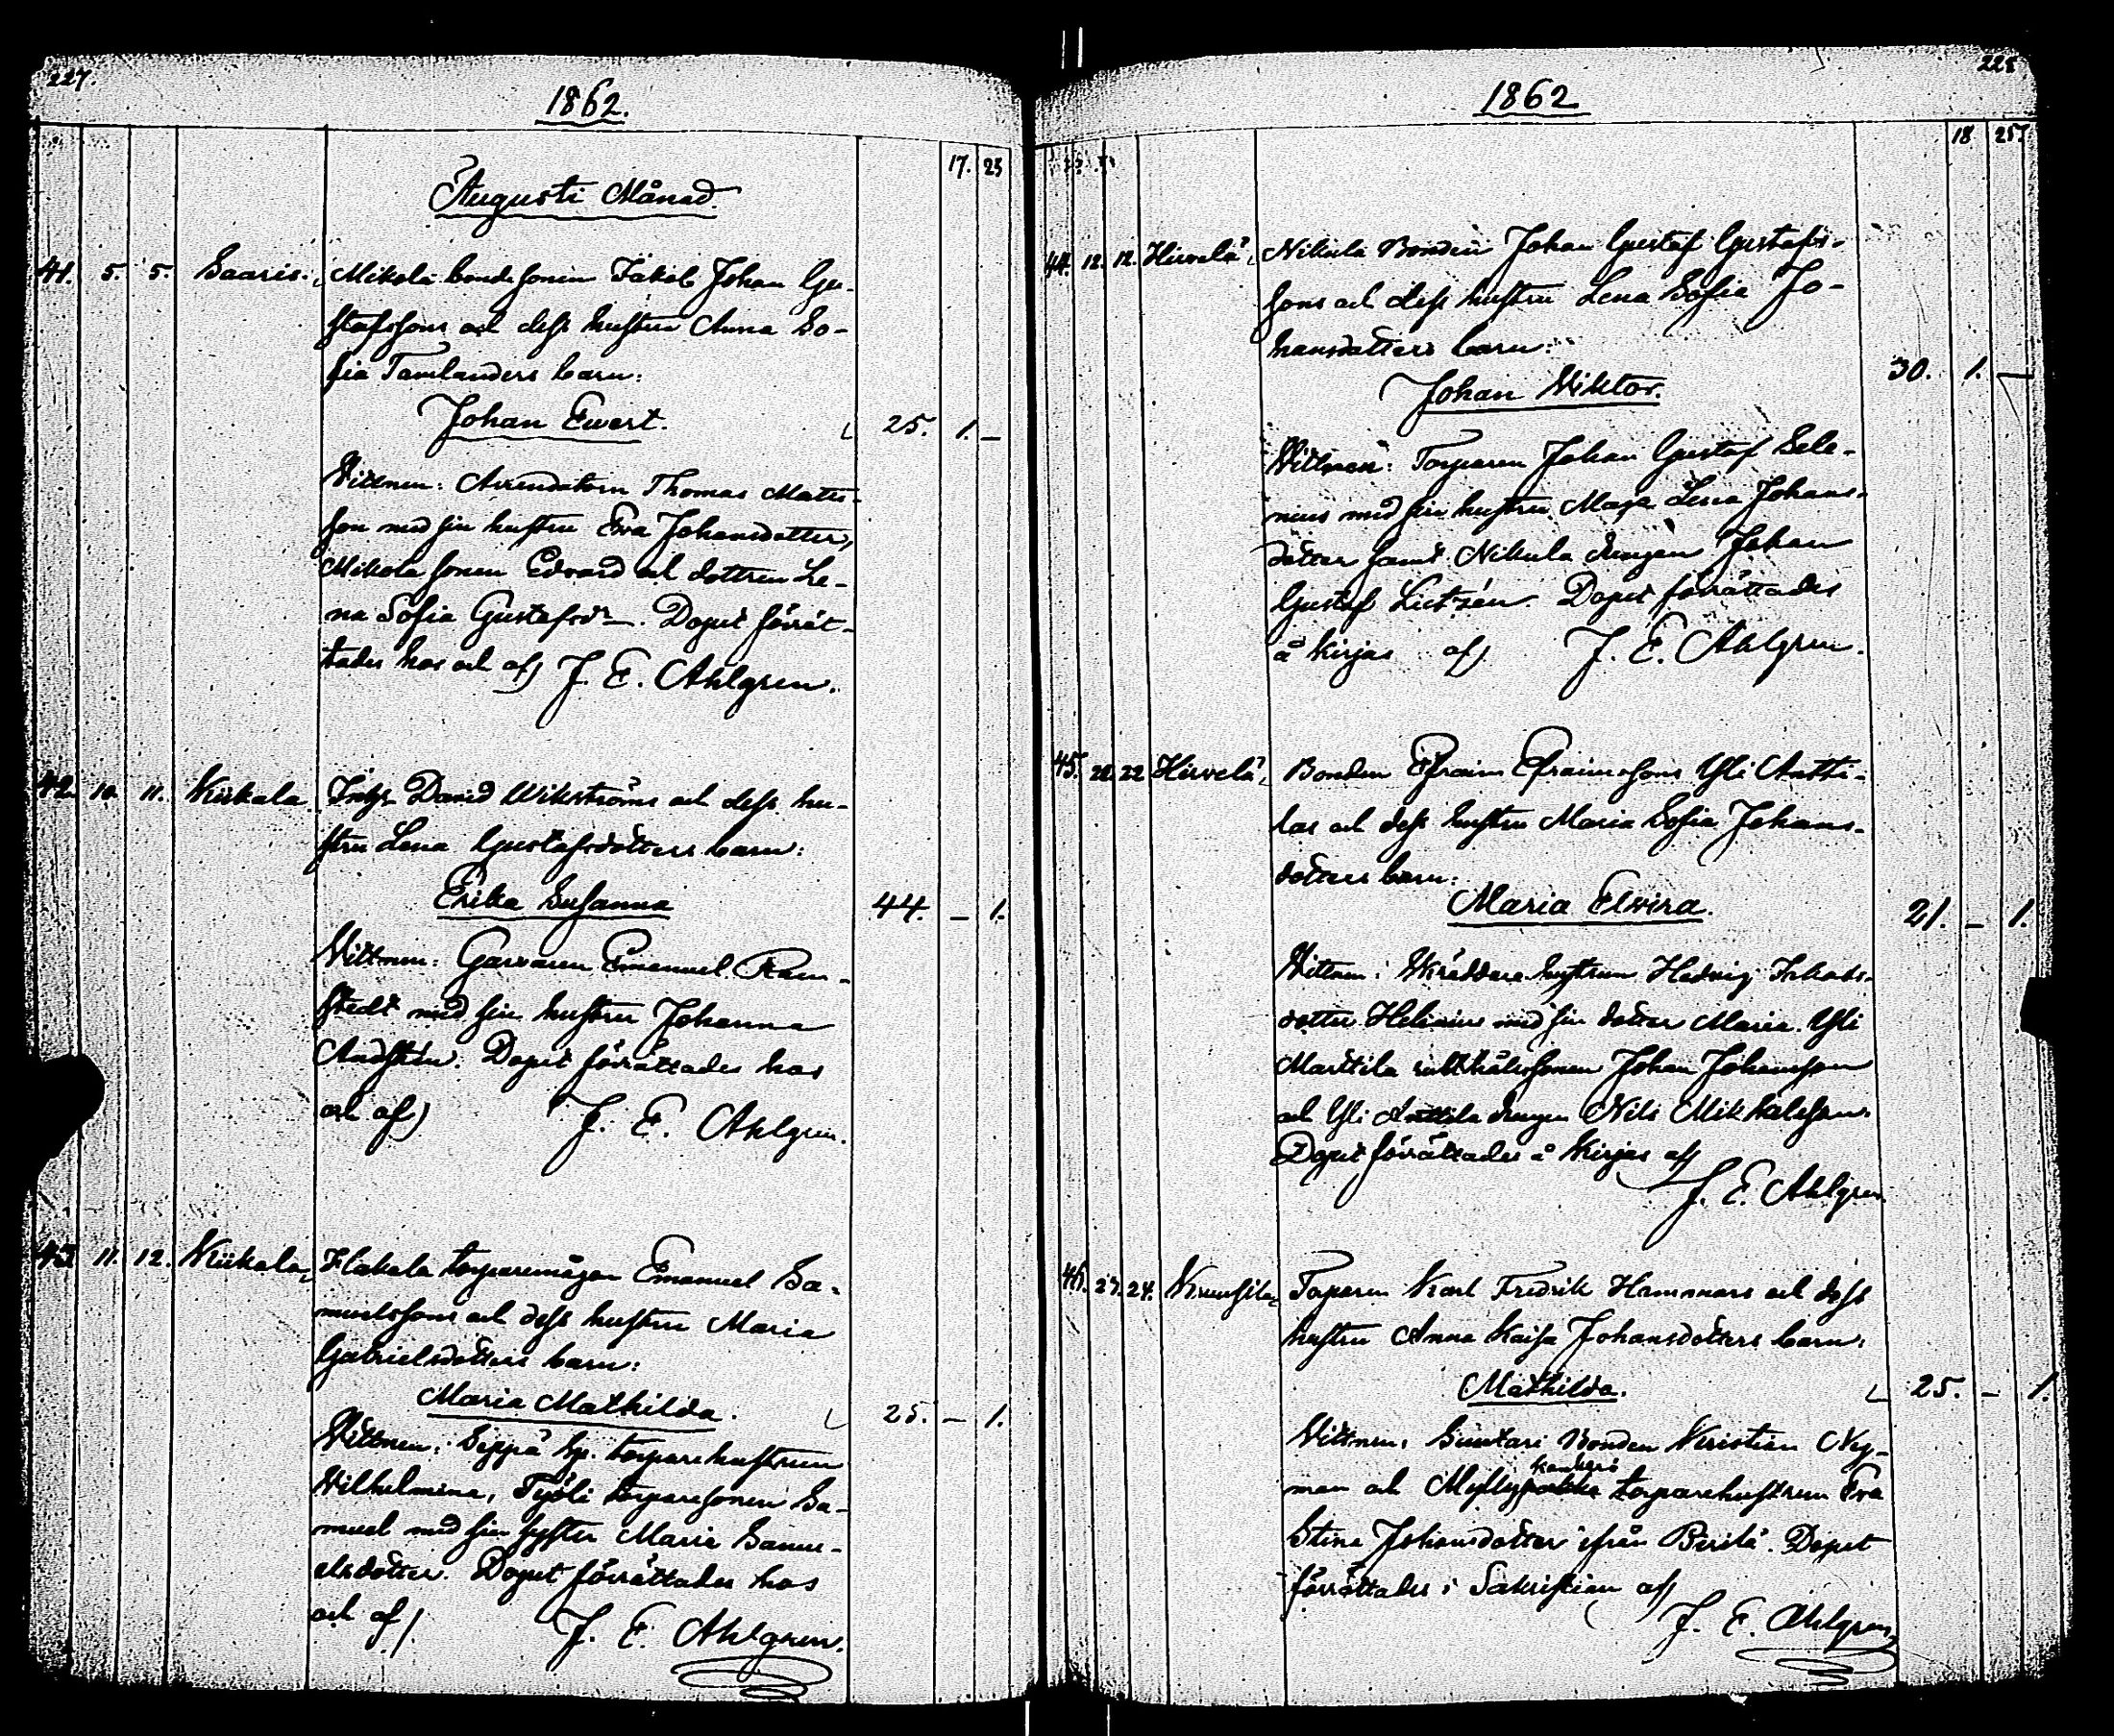 227.
1862.
17. 25
Augusti Månad.
41. 5. 5. Saaris. Mikola bondesonen Jakob Johan Gu-
stafssons och dess hustru Anna So-
fia Tamlanders barn:
Johan Ewert. 25. 1. –
Vittnen: Arrendatorn Thomas Mats-
son med sin hustru Eva Johansdotter,
Mikola sonen Edvard och dottren Le-
na Sofia Gustafsdr. Dopet förrät-
tades hos och af J. E. Ahlgren.
42. 10. 11. Kiikala. David Wikströms och dess hu-
stru Lena Gustafsdotters barn:
Erika Susanna 44. – 1.
Vittnen: Garvaren Emanuel Ram-
stedt med sin hustru Johanna
Dopet förrättades hos
och af J. E. Ahlgren.
43. 11. 12. Kiikala, torparemågen Emanuel Sa-
muelssons och dess hustru Maria
Gabrielsdotters barn:
Maria Mathilda. 25. – 1.
Vittnen: Seppä torparehustrun
Wilhelmina, Työli torparesonen Sa-
muel med sin syster Maria Samu-
elsdotter. Dopet förrättades hos
och af J. E. Ahlgren.
228
1862
18 25
44. 12. 12. Hirvelä, Nikula Bonden Johan Gustaf Gustafs-
sons och dess hustru Lena Sofia Jo-
hansdotters barn:
Johan Viktor. 30. 1. –
Vittnen: Torparen Johan Gustaf Sele-
nius med sin hustru Maja Lena Johans-
dotter samt Nikula drengen Johan
Gustaf Dopet förrättades
å Kirjas af J. E. Ahlgren.
45. 22. 22 Hirvelä, Bonden Efraim Efraimssons Yli Antti-
las och dess hustru Maria Sofia Johans-
dotters barn:
Maria Elvira. 21. – 1.
Vittnen: Skräddare hustrun Hedvig Jakobs-
dotter Helenius med sin dotter Maria. Yli
Marttila Johan Johansson
och Yli Anttila drengen Nils Mikkelsson.
Dopet förrättades å Kirjas af
J. E. Ahlgren
46. 23. 24. Torparen Karl Fredrik Hammars och dess
hustru Anna Kaisa Johansdotters barn:
Mathilda. 25. – 1.
Vittnen: Suutari Bonden Kristian Ny-
man och torparehustrun Eva
Stina Johansdotter ifrån Pirilä. Dopet
förrättades i Sakristian af
J. E. Ahlgren